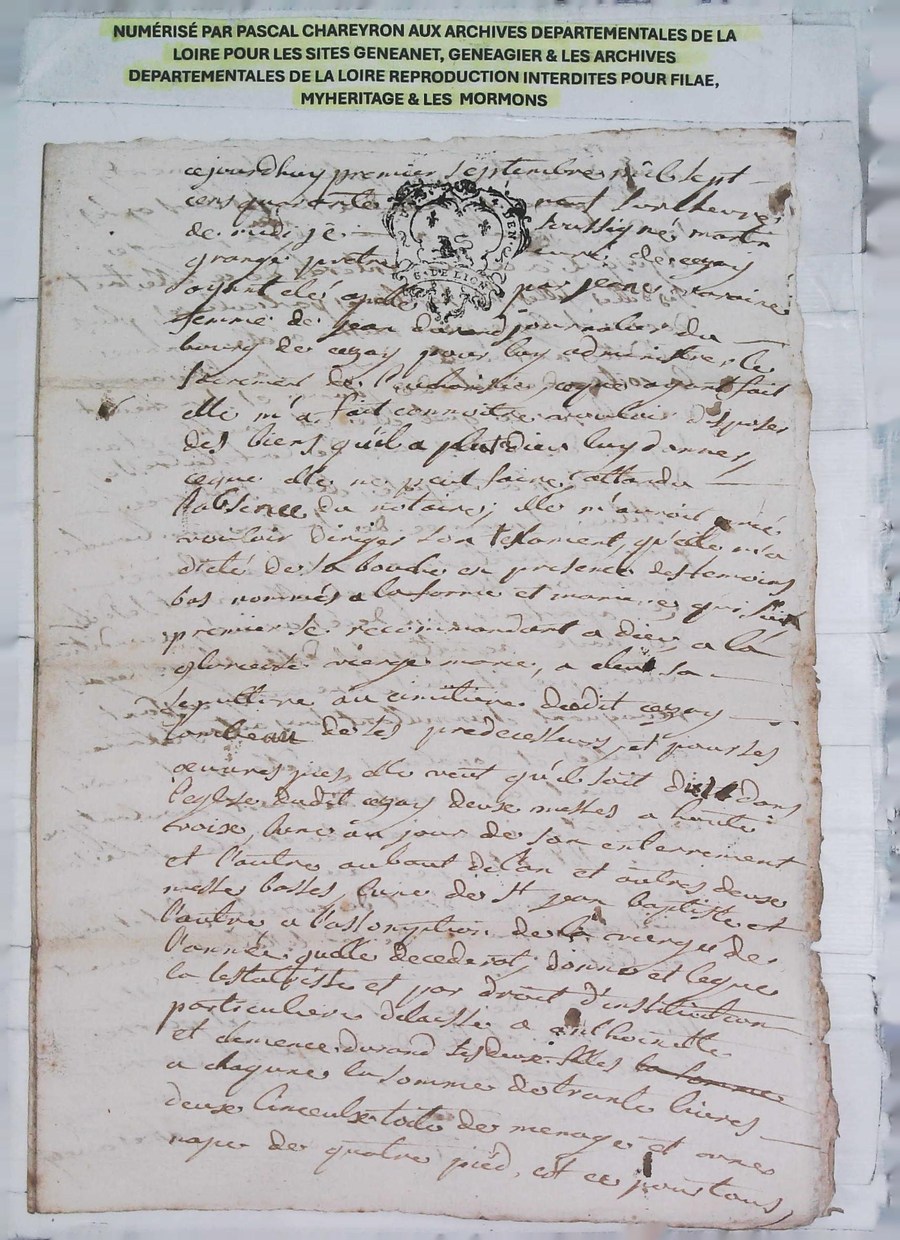 NUMÉRISÉ PAR PASCAL CHAREYRON AUX ARCHIVES DEPARTEMENTALES DE LA
LOIRE POUR LES SITES GENEANET, GENEAGIER & LES ARCHIVES
DEPARTEMENTALES DE LA LOIRE REPRODUCTION INTERDITES POUR FILAE,
MYHERITAGE & LES MORMONS
cejourdhuy premier septembre mil sept
cens quarante neuf sur lheure
de midi je soussigné martin
grangé pretre curé de cezay
ayant eté apellé par jeane
femme de jean durand journalier du
bourg de cezay pour luy administrer le
sacrement de l'eucharistie, ceque ayant fait
elle m'a fait connoitre vouloir disposer
des biens qu'il a plut a dieu luy donner,
ceque elle ne peut faire, attendu
l'absence du notaire; elle m'auroit prié
vouloir diriger son testament, qu'elle m'a
dicté de sa bouche en presence des temoins
bas nommés a la forme et maniere qui suit
premier se recommandant a dieu, a la
glorieuse vierge marie, a eleut sa
sepulture au cimitiere dudit cezay
tombeau de ses predecesseurs, et pour ses
œuvres pies, elle veut qu'il soit dit dans
l'eglise dudit cezay deux messes a haute
voise, lune au jour de son enterrement
et l'autre au bout de l'an et autres deuse
messe basses, lune de st jean baptiste et
l'autre a l'assomption de la vierge de
l'année quelle decedera, donne et legue
la testatrisse et par droit d'institution
particuliere delaisse a anthoinette
et clemence durand ses deux filles la somme
a chaqune la somme de trante livres
deuse linceulse toile de menage et
nape de quatre pied, et ce pour tous
G. DE LION